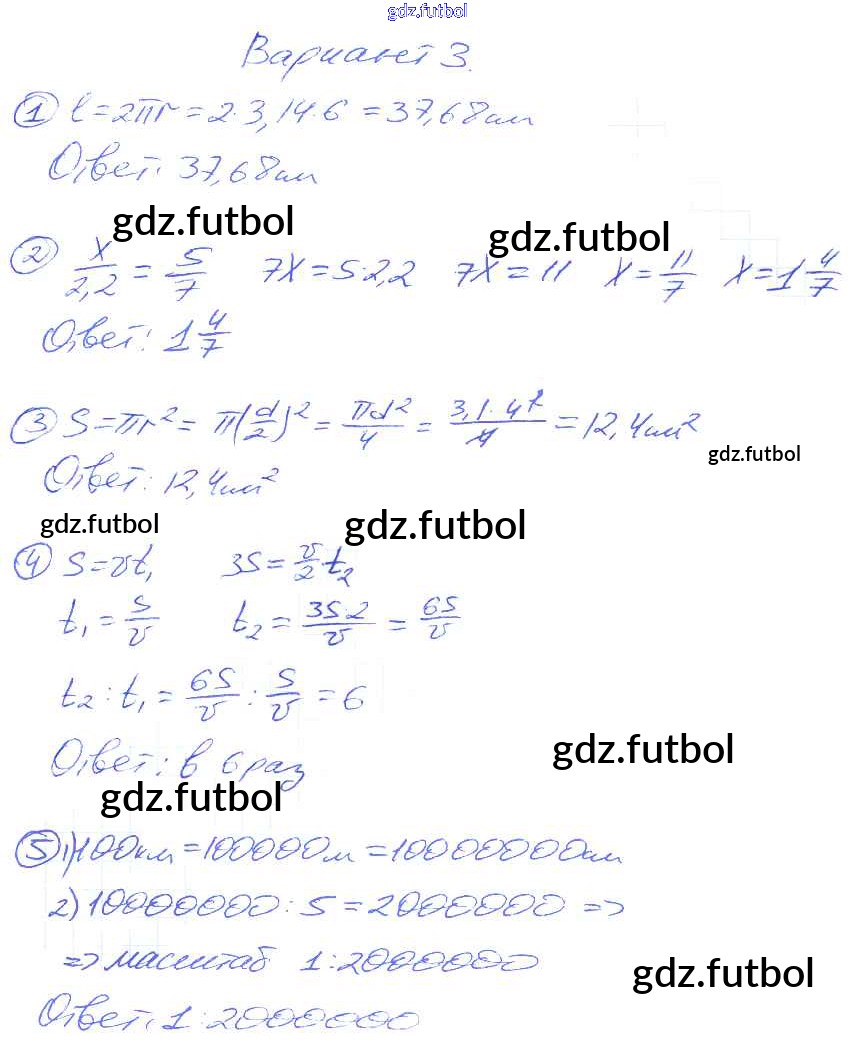 gdz.futbol
Вариант 3.
① l = 2πr = 2·3,14·6 = 37,68 см
Ответ: 37,68 см
gdz.futbol gdz.futbol
② x/2,2 = 5/7 7x = 5·2,2 7x = 11 x = 11/7 x = 1 4/7
Ответ: 1 4/7
③ S = πr² = π(d/2)² = πd²/4 = 3,1·4²/4 = 12,4 см²
gdz.futbol
Ответ: 12,4 см²
gdz.futbol gdz.futbol
④ S = vt₁ 3S = v/2 t₂
t₁ = S/v t₂ = 3S·2/v = 6S/v
t₂ : t₁ = 6S/v : S/v = 6
gdz.futbol
Ответ: в 6 раз
gdz.futbol
⑤ 1) 100 км = 100000 м = 10000000 см
2) 10000000 : 5 = 2000000 =>
=> масштаб 1:2000000
gdz.futbol
Ответ: 1:2000000